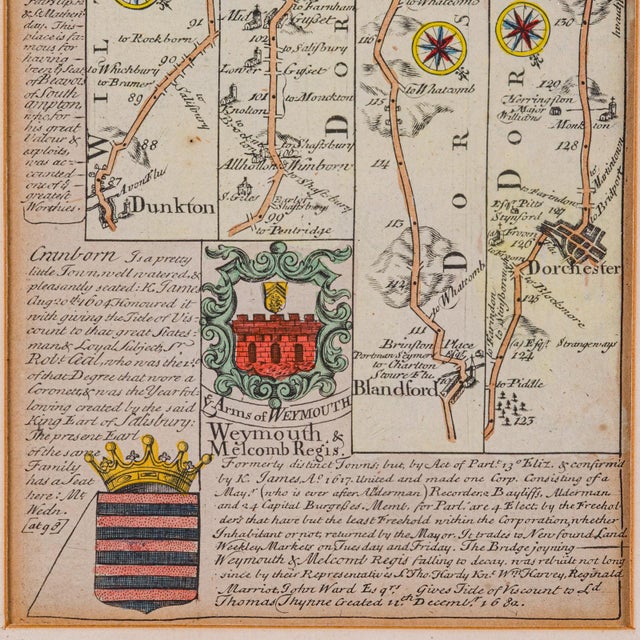 & St. Mathew
day. This
place is fa
mous for
having
of Beavois
of South
ampton
who for
his great
Valour &
exploits,
was ac=
counted
one of ye
greatest
Worthies.
W I L T
91
to Rockborn
90
to Whichbury
to Bramer
89
to Salisbury
88
87
Avon Flu
Dunkton
to Farnham
Gusset
102
to Salisbury
Lower
Gusset
101
to Monckton
Knolton
100
to Shaftsbury
Allhollon
Winborn
St. Giles
to Shaftsbury
99
to Pentridge
D O R
to Whatcomb
116
to Whatcomb
115
114
113
112
to Whatcomb
111
Brinston Place
Portman Seymor
to Charlton
Stoure Flu
Blandford
D O R S
130
129
120
Herringston
Major
Williams
Monkton
128
to Martintown
to Bridport
Esqr. Pitts
Stinsford
126
Dorchester
to Blockmore
125
Esqr. Strangeways
124
to Piddle
123
D O R
Cranborn Is a pretty
little Town well watered &
pleasantly seated: K. James
Aug 20th. 1604 Honoured it
with giving the Title of Vis=
count to that great States=
man & Loyal Subject, Sr.
Robt. Cecil, who was the 1st.
of that Degree that wore a
Coronett, & was the Year fol
lowing created by the said
King Earl of Salisbury:
The present Earl
of the same
Family
has a Seat
here: Mt.
Wedn.
[at 98]
ye Arms of WEYMOUTH
Weymouth &
Melcomb Regis.
Formerly distinct Towns; but, by Act of Parl. 13o Eliz. & confirm'd
by K. James Ao. 1617. United and made one Corp. Consisting of a
Mayr. (who is ever after Alderman) Recorder, 2 Bayliffs, Alderman
and 24 Capital Burgesses. Memb. for Parl. are 4 Elect. by the Freehol
ders that have but the least Freehold within the Corporation, whether
Inhabitant or not; returned by the Mayor. It trades to Newfound Land.
Weekley Markets on Tuesday and Friday. The Bridge joyning
Weymouth & Melcomb Regis falling to decay, was rebuilt not long
since by their Representatives Sr. Tho. Hardy Knt. Wm. Harvey, Reginald
Marriot, John Ward Esqrs. Gives Title of Viscount to Ld.
Thomas Thynne Created 11th Decemb. 1682.